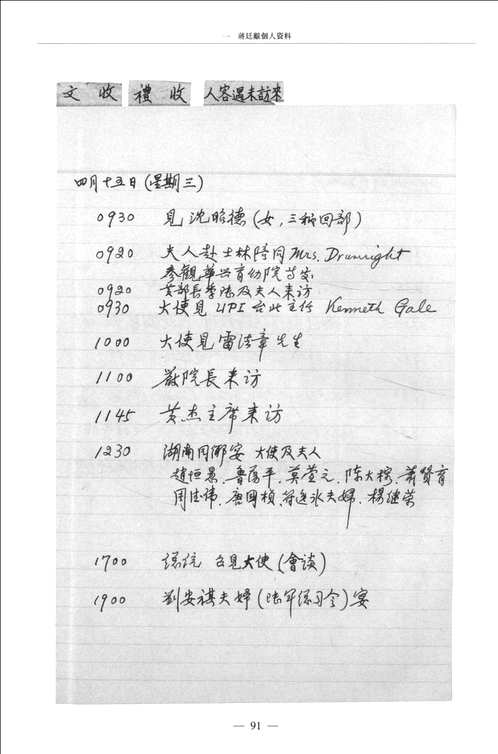 一 蔣廷黻個人資料
文 收 禮 收 人客遇未訪來
四月十五日(星期三)
0930 見沈晧德(女,三秘回部)
0920 夫人赴士林陪同Mrs. Drumright
參觀華興育幼院
0920 黃部長季陸及夫人來訪
0930 大使見UPI台北主任 Kenneth Gale
1000 大使見雷法章先生
1100 嚴院長來訪
1145 黃杰主席來訪
1230 湖南同鄉宴 大使及夫人
趙恒惖、魯蕩平、莫萱元、陳大榕、蕭贊育
周佳偉、唐國楨、符逸冰夫婦、楊繼榮
1700 總統 召見大使(會談)
1900 劉安祺夫婦(陸軍總司令)宴
— 91 —